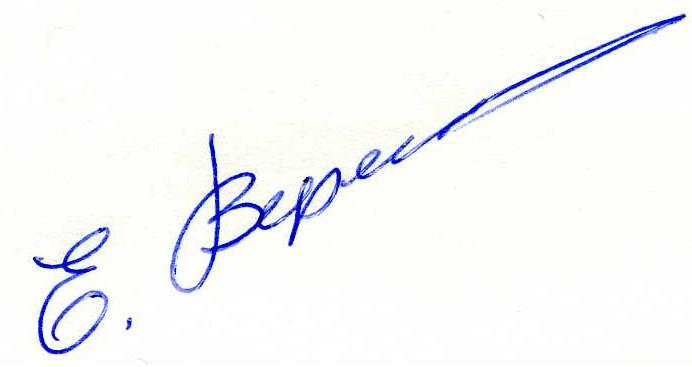 Е. Верес